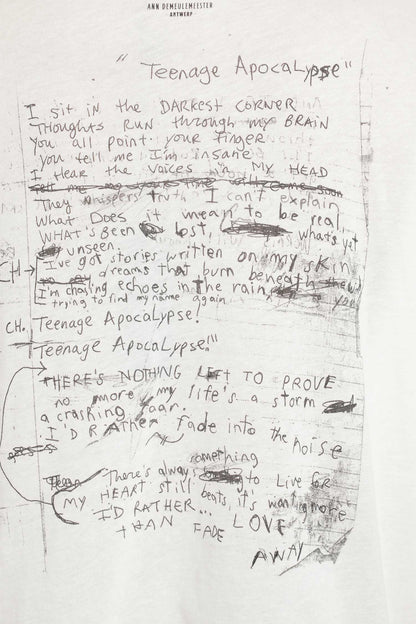 ANN DEMEULEMEESTER
ANTWERP
"Teenage ApocaLypse"
I sit in the DARKEST CORNER
Thoughts RUN through my BRAIN
You all point your finger
you tell me I'm insane
I Hear the Voices in MY HEAD
They whispers truth I can't explain
What Does it mean to be real,
WHAT'S BEEN lost, what's yet
unseen.
CH→ I've got stories written on my skin
dreams that burn beneath
I'm chasing echoes in the rain
I trying to find my name again
CH. Teenage ApocaLypse!
Teenage ApocaLypse!!"
THERE'S NOTHING LEFT TO PROVE
no more, my life's a storm
a crashing roar.
I'D RATHER fade into the noise
something
There's always to Live for
MY HEART still beats, it's wanting more
I'D RATHER... LOVE
THAN FADE
AWAY